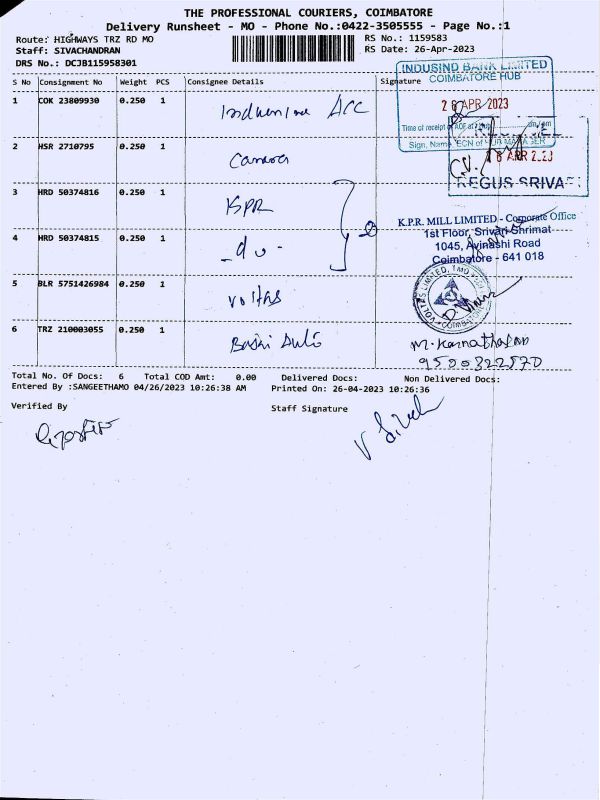 THE PROFESSIONAL COURIERS, COIMBATORE
Delivery Runsheet - MO - Phone No.:0422-3505555 - Page No.:1
Route: HIGHWAYS TRZ RD MO
RS No.: 1159583
Staff: SIVACHANDRAN
RS Date: 26-Apr-2023
DRS No.: DCJB115958301
S No Consignment No Weight PCS Consignee Details Signature
INDUSIND BANK LIMITED
COIMBATORE HUB
26 APR 2023
1 COK 23809930 0.250 1
2 HSR 2710795 0.250 1 Canara
REGUS SRIVA
3 HRD 50374816 0.250 1 KPR
K.P.R. MILL LIMITED - Corporate Office
1st Floor, Srivari Shrimat
1045, Avinashi Road
Coimbatore - 641 018
4 HRD 50374815 0.250 1 - do -
5 BLR 5751426984 0.250 1 Voltas
VOLTAS LIMITED
COIMBATORE
6 TRZ 210003055 0.250 1
Total No. Of Docs: 6 Total COD Amt: 0.00 Delivered Docs: Non Delivered Docs:
Entered By :SANGEETHAMO 04/26/2023 10:26:38 AM Printed On: 26-04-2023 10:26:36
Verified By Staff Signature